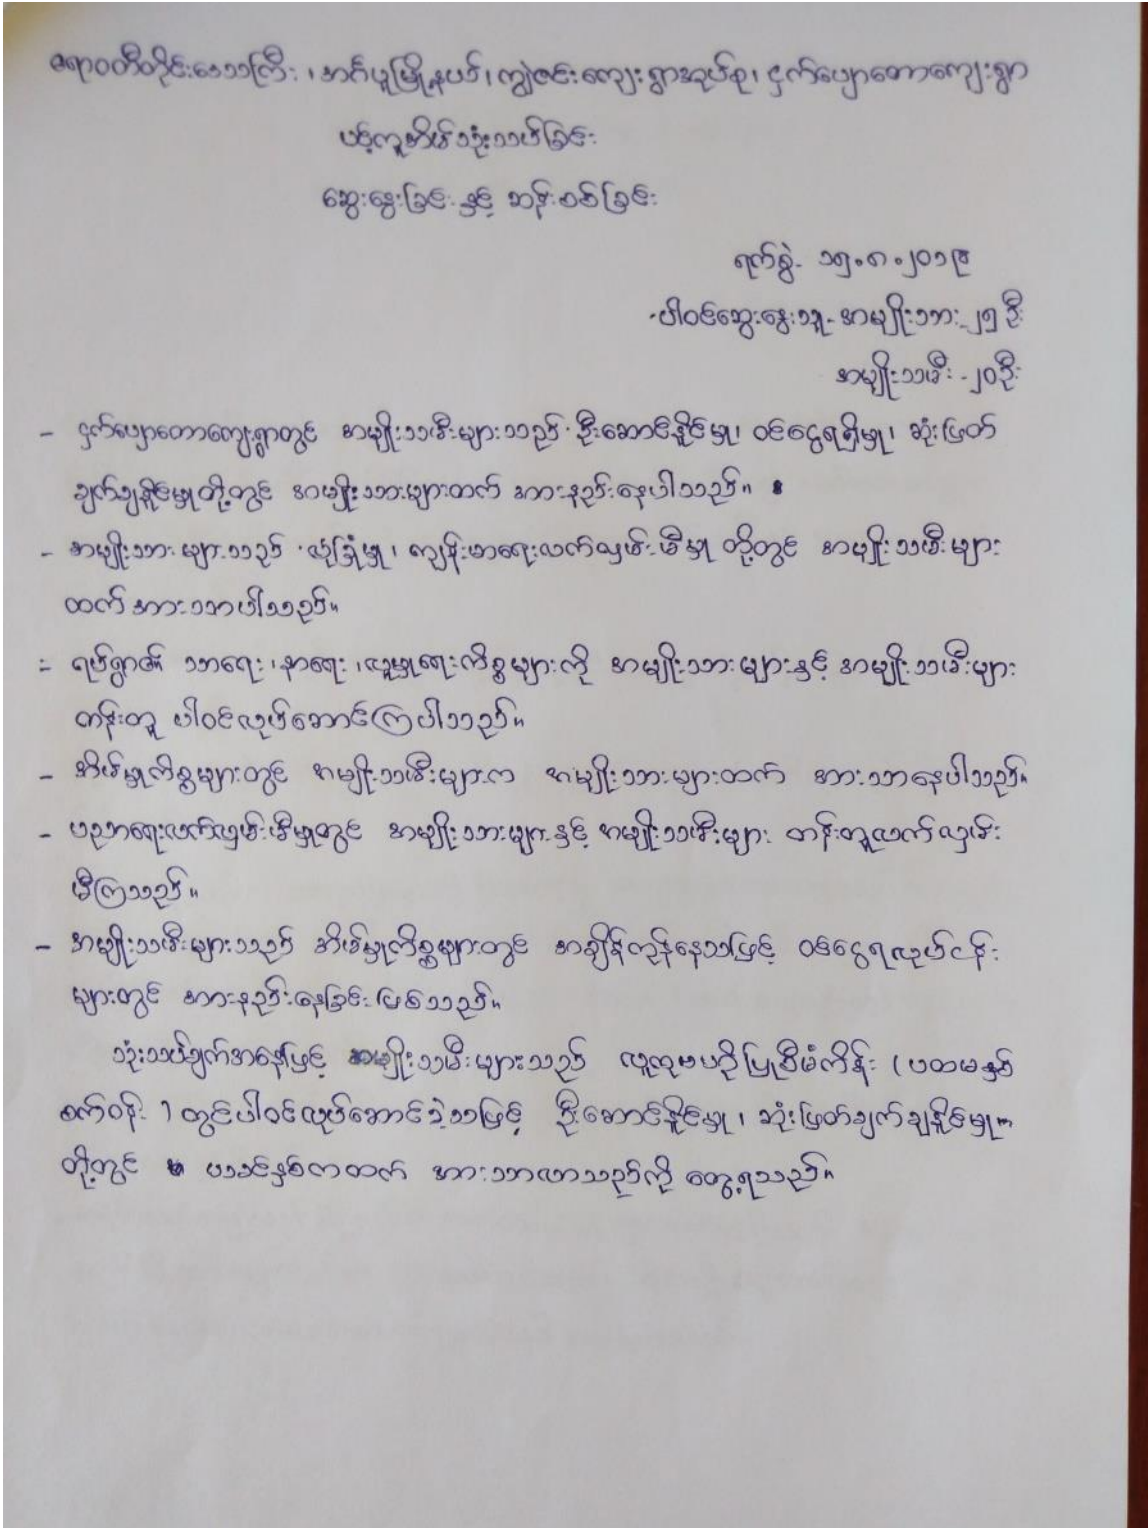 ဧရာဝတီတိုင်းဒေသကြီး၊ အင်္ဂပူမြို့နယ်၊ ကျွဲဇင်းကျေးရွာအုပ်စု၊ ငှက်ပျောတောကျေးရွာ
ပင့်ကူအိမ်သုံးသပ်ခြင်း
ဆွေးနွေးခြင်းနှင့် ဆန်းစစ်ခြင်း
ရက်စွဲ - ၁၅.၈.၂၀၁၉
ပါဝင်ဆွေးနွေးသူ - အမျိုးသား - ၂၅ ဦး
အမျိုးသမီး - ၂၀ ဦး
- ငှက်ပျောတောကျေးရွာတွင် အမျိုးသမီးများသည် ဦးဆောင်နိုင်မှု၊ ဝင်ငွေရရှိမှု၊ ဆုံးဖြတ်
ချက်ချနိုင်မှုတို့တွင် အမျိုးသားများထက် အားနည်းနေပါသည်။
- အမျိုးသားများသည် လုံခြုံမှု၊ ကျန်းမာရေးလက်လှမ်းမီမှု တို့တွင် အမျိုးသမီးများ
ထက် အားသာပါသည်။
- ရပ်ရွာ၏ သာရေး၊ နာရေး၊ လူမှုရေးကိစ္စများကို အမျိုးသားများနှင့် အမျိုးသမီးများ
တန်းတူ ပါဝင်လုပ်ဆောင်ကြပါသည်။
- အိမ်မှုကိစ္စများတွင် အမျိုးသမီးများက အမျိုးသားများထက် အားသာနေပါသည်။
- ပညာရေးလက်လှမ်းမီမှုတွင် အမျိုးသားများနှင့် အမျိုးသမီးများ တန်းတူလက်လှမ်း
မီကြသည်။
- အမျိုးသမီးများသည် အိမ်မှုကိစ္စများတွင် အချိန်ကုန်နေသဖြင့် ဝင်ငွေရလုပ်ငန်း
များတွင် အားနည်းနေခြင်းဖြစ်သည်။
သုံးသပ်ချက်အနေဖြင့် အမျိုးသမီးများသည် လူထုဗဟိုပြုစီမံကိန်း (ပထမနှစ်
စက်ဝန်း) တွင်ပါဝင်လုပ်ဆောင်ခဲ့သဖြင့် ဦးဆောင်နိုင်မှု၊ ဆုံးဖြတ်ချက်ချနိုင်မှု
တို့တွင် ယခင်နှစ်ကထက် အားသာလာသည်ကို တွေ့ရသည်။